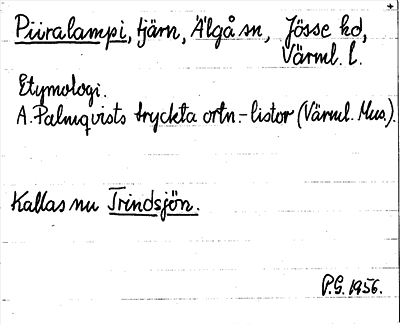 Piiralampi, tjärn, Älgå sn, Jösse hd,
Värml. l.
Etymologi.
A. Palmqvists tryckta ortn.-listor (Värml. Mus.).
Kallas nu Trindsjön.
P.G. 1956.